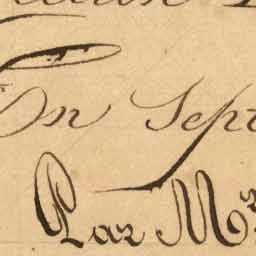 En Sept
Par Mr